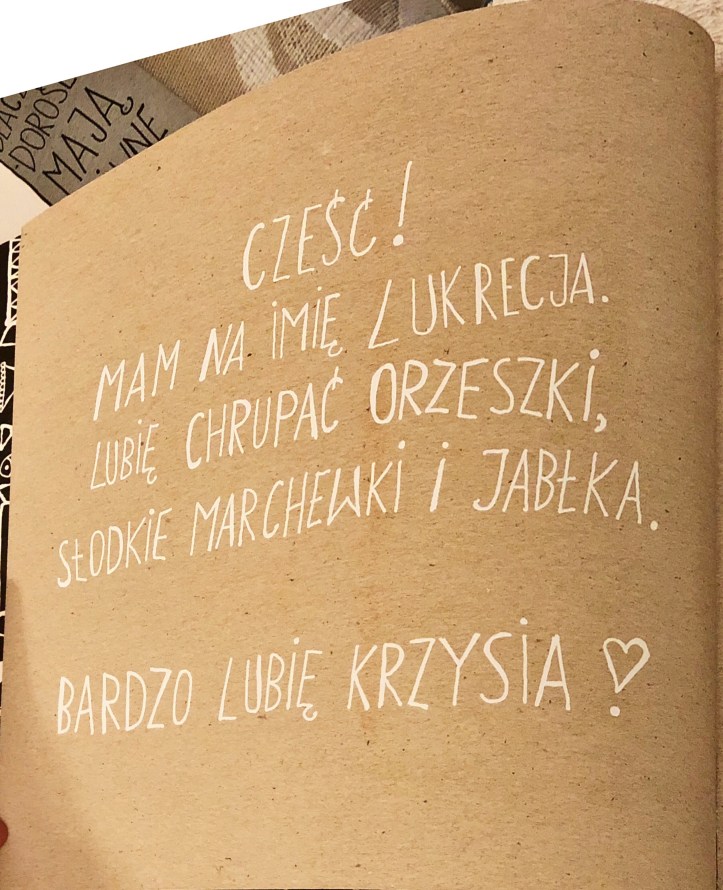 DOROŚ
MAJĄ
CZEŚĆ!
MAM NA IMIĘ LUKRECJA.
LUBIĘ CHRUPAĆ ORZESZKI,
SŁODKIE MARCHEWKI I JABŁKA.
BARDZO LUBIĘ KRZYSIA!